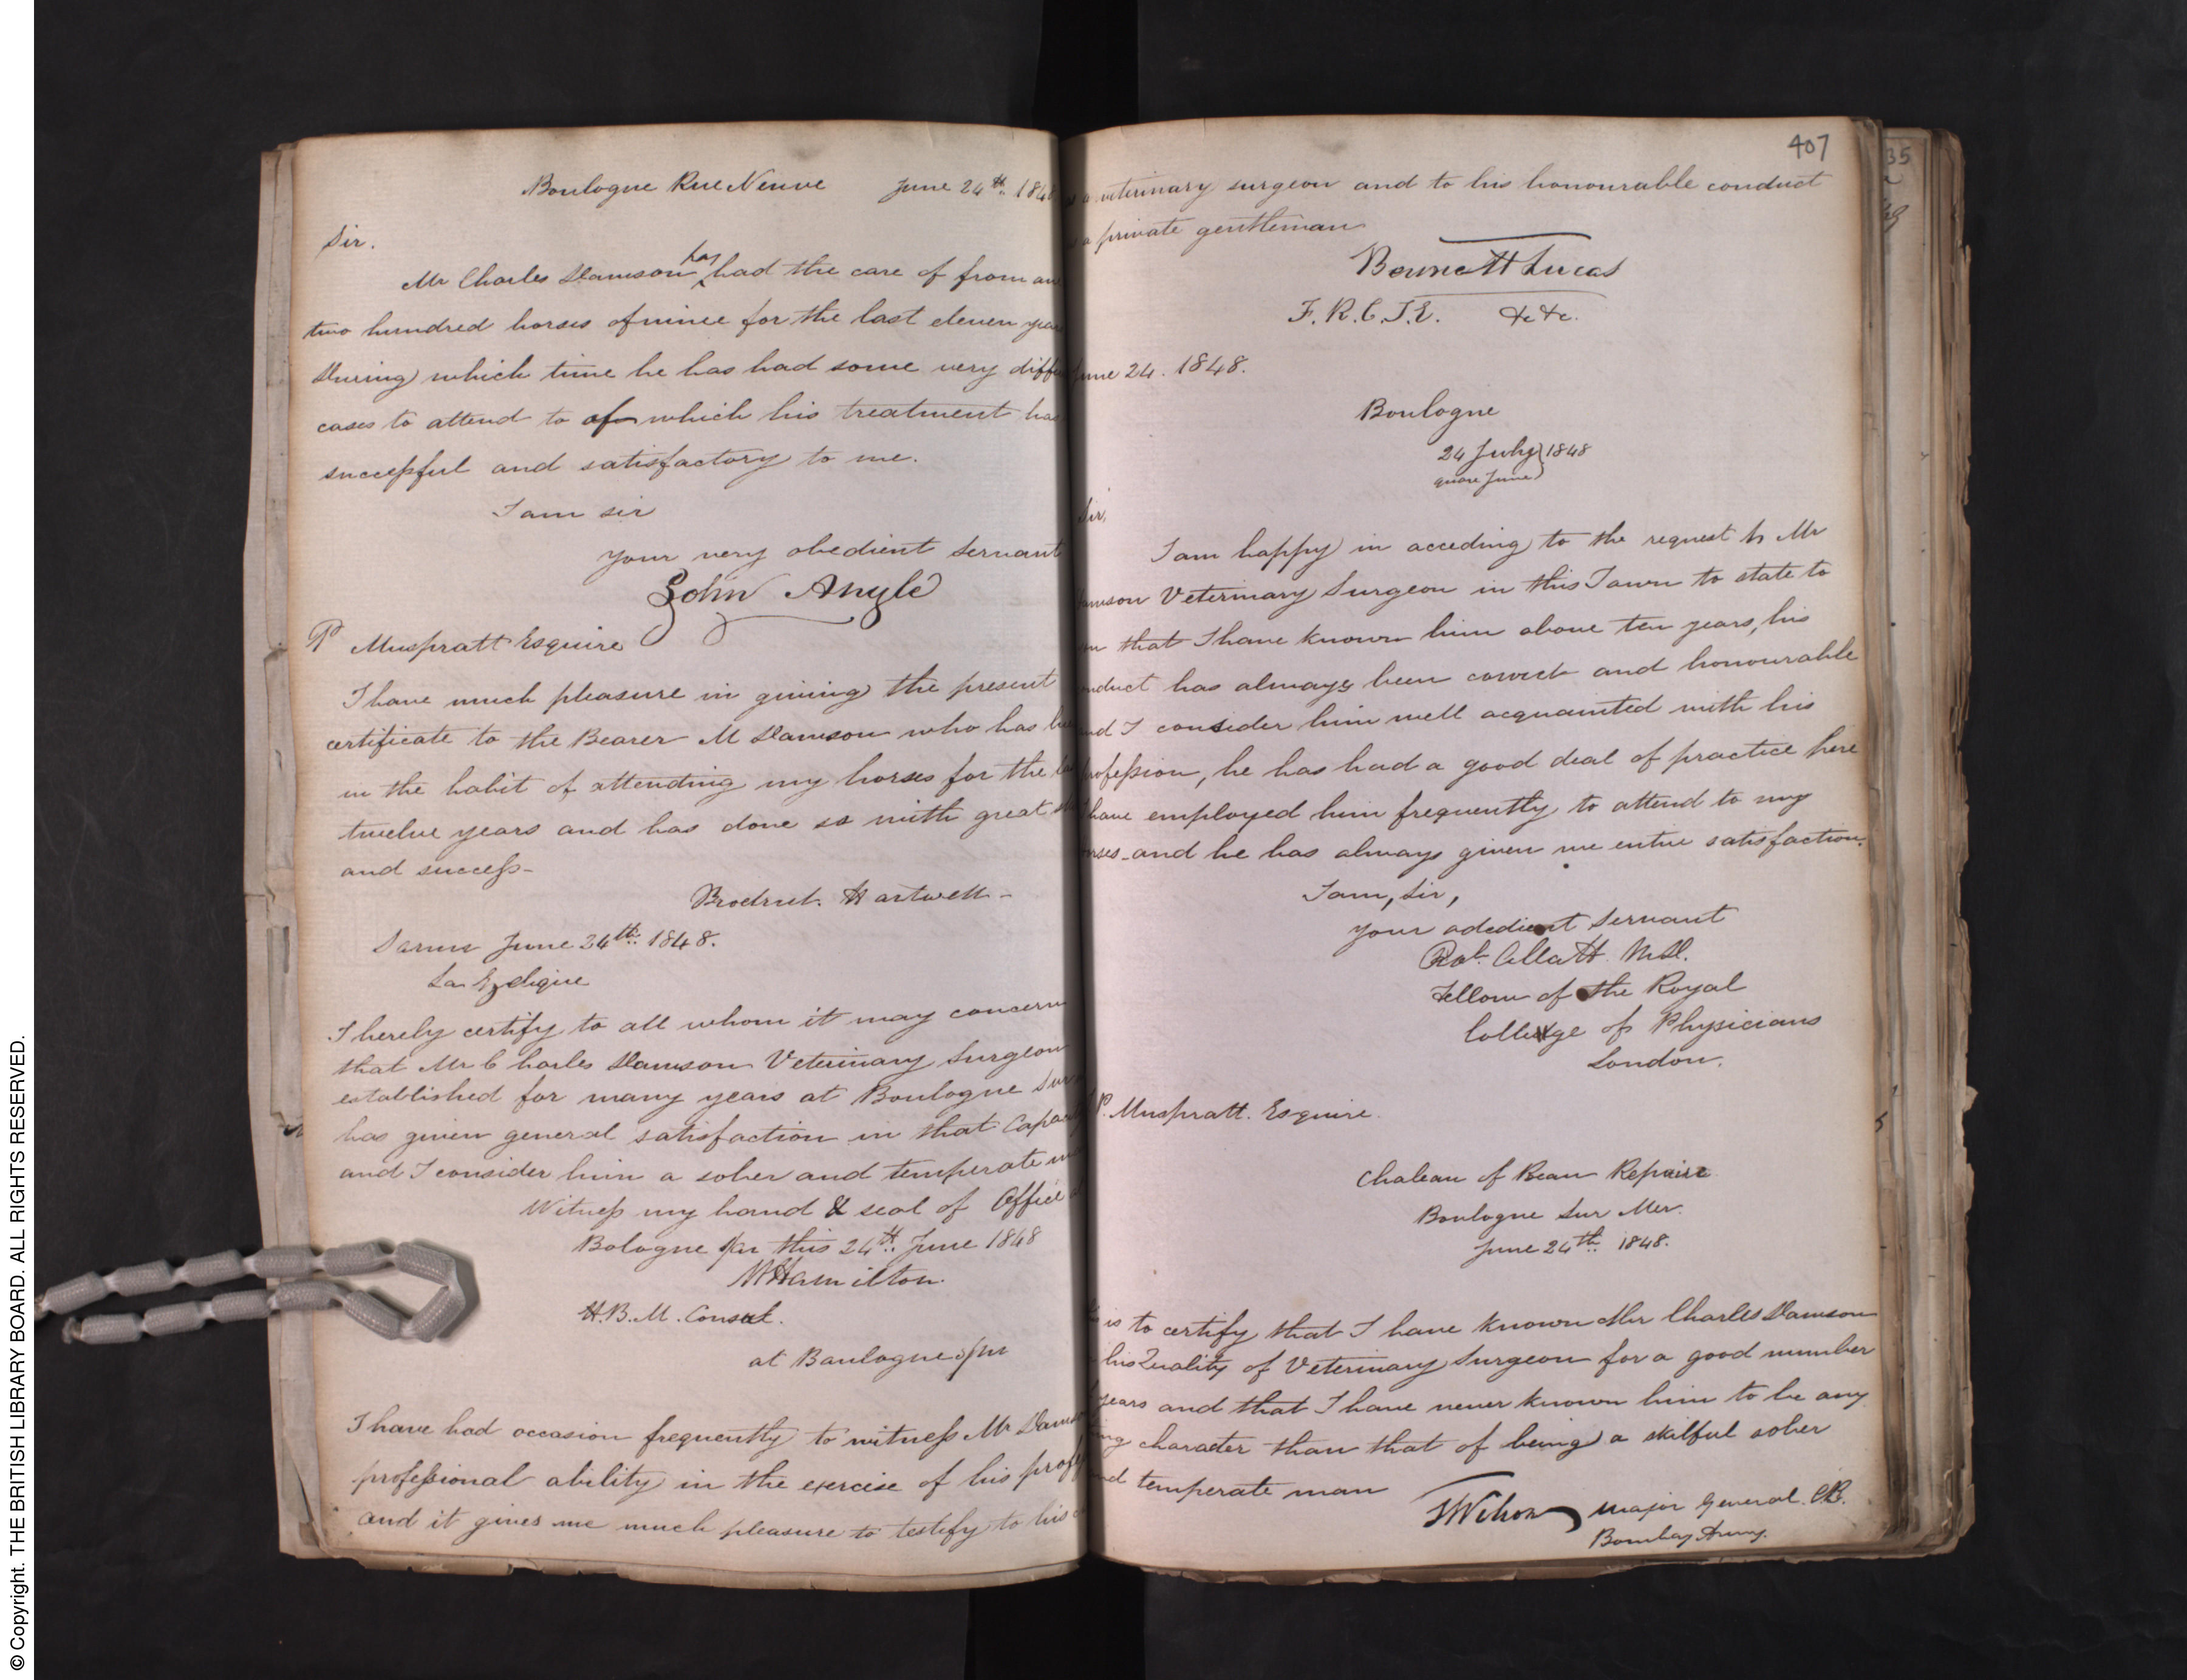 Boulogne Rue Neuve June 24th. 1848
Sir.
Mr Charles Dawson has had the care of from an
two hundred horses of mine for the last eleven yea
During which time he has had some very diffe
cases to attend to of which his treatment has
successful and satisfactory to me.
I am sir
your very obedient Servant
John Anyle
P Muspratt Esquire
I have much pleasure in giving the present
certificate to the Bearer M Dawson who has be
in the habit of attending my horses for the la
twelve years and has done so with great
and success-
Brodrut. Hartwell-
June 24th. 1848.
La
I hereby certify to all whom it may concern
that Mr Charles Dawson Veterinary Surgeon
established for many years at Boulogne Sur
has given general satisfaction in that Capac
and I consider him a sober and temperate m
Witness my hand & seal of Office
Bologne this 24th. June 1848
W Hamilton.
H.B.M. Consul.
at Boulogne s/m
I have had occasion frequently to witness Mr Daws
professional ability in the exercise of his profe
and it gives me much pleasure to testify to his
407
a veterinary surgeon and to his honourable conduct
a private gentleman
Bennett Lucas
F.R.C.S.E. &c &c.
June 24. 1848.
Boulogne
24 July } 1848
quare June
Sir,
I am happy in acceding to the request to Mr
awson Veterinary Surgeon in this Town to state to
that I have known him above ten years, his
nduct has always been correct and honourable
nd I consider him well acquainted with his
rofession, he has had a good deal of practice here
have employed him frequently to attend to my
rses and he has always given me entire satisfaction.
I am, Sir,
your adedient Servant
Rob. Allatt. M.D.
Fellow of the Royal
College of Physicians
London.
P. Muspratt. Esquire.
Chaleau of Beau Repaire
Boulogne Sur Mer.
June 24th. 1848.
is to certify that I have known Mr Charles Dawson
his Quality of Veterinary Surgeon for a good number
years and that I have never known him to be any
ing character than that of being a skilful sober
nd temperate man
T Wilson Major General. CB.
Bombay Army.
35
© Copyright. THE BRITISH LIBRARY BOARD. ALL RIGHTS RESERVED.